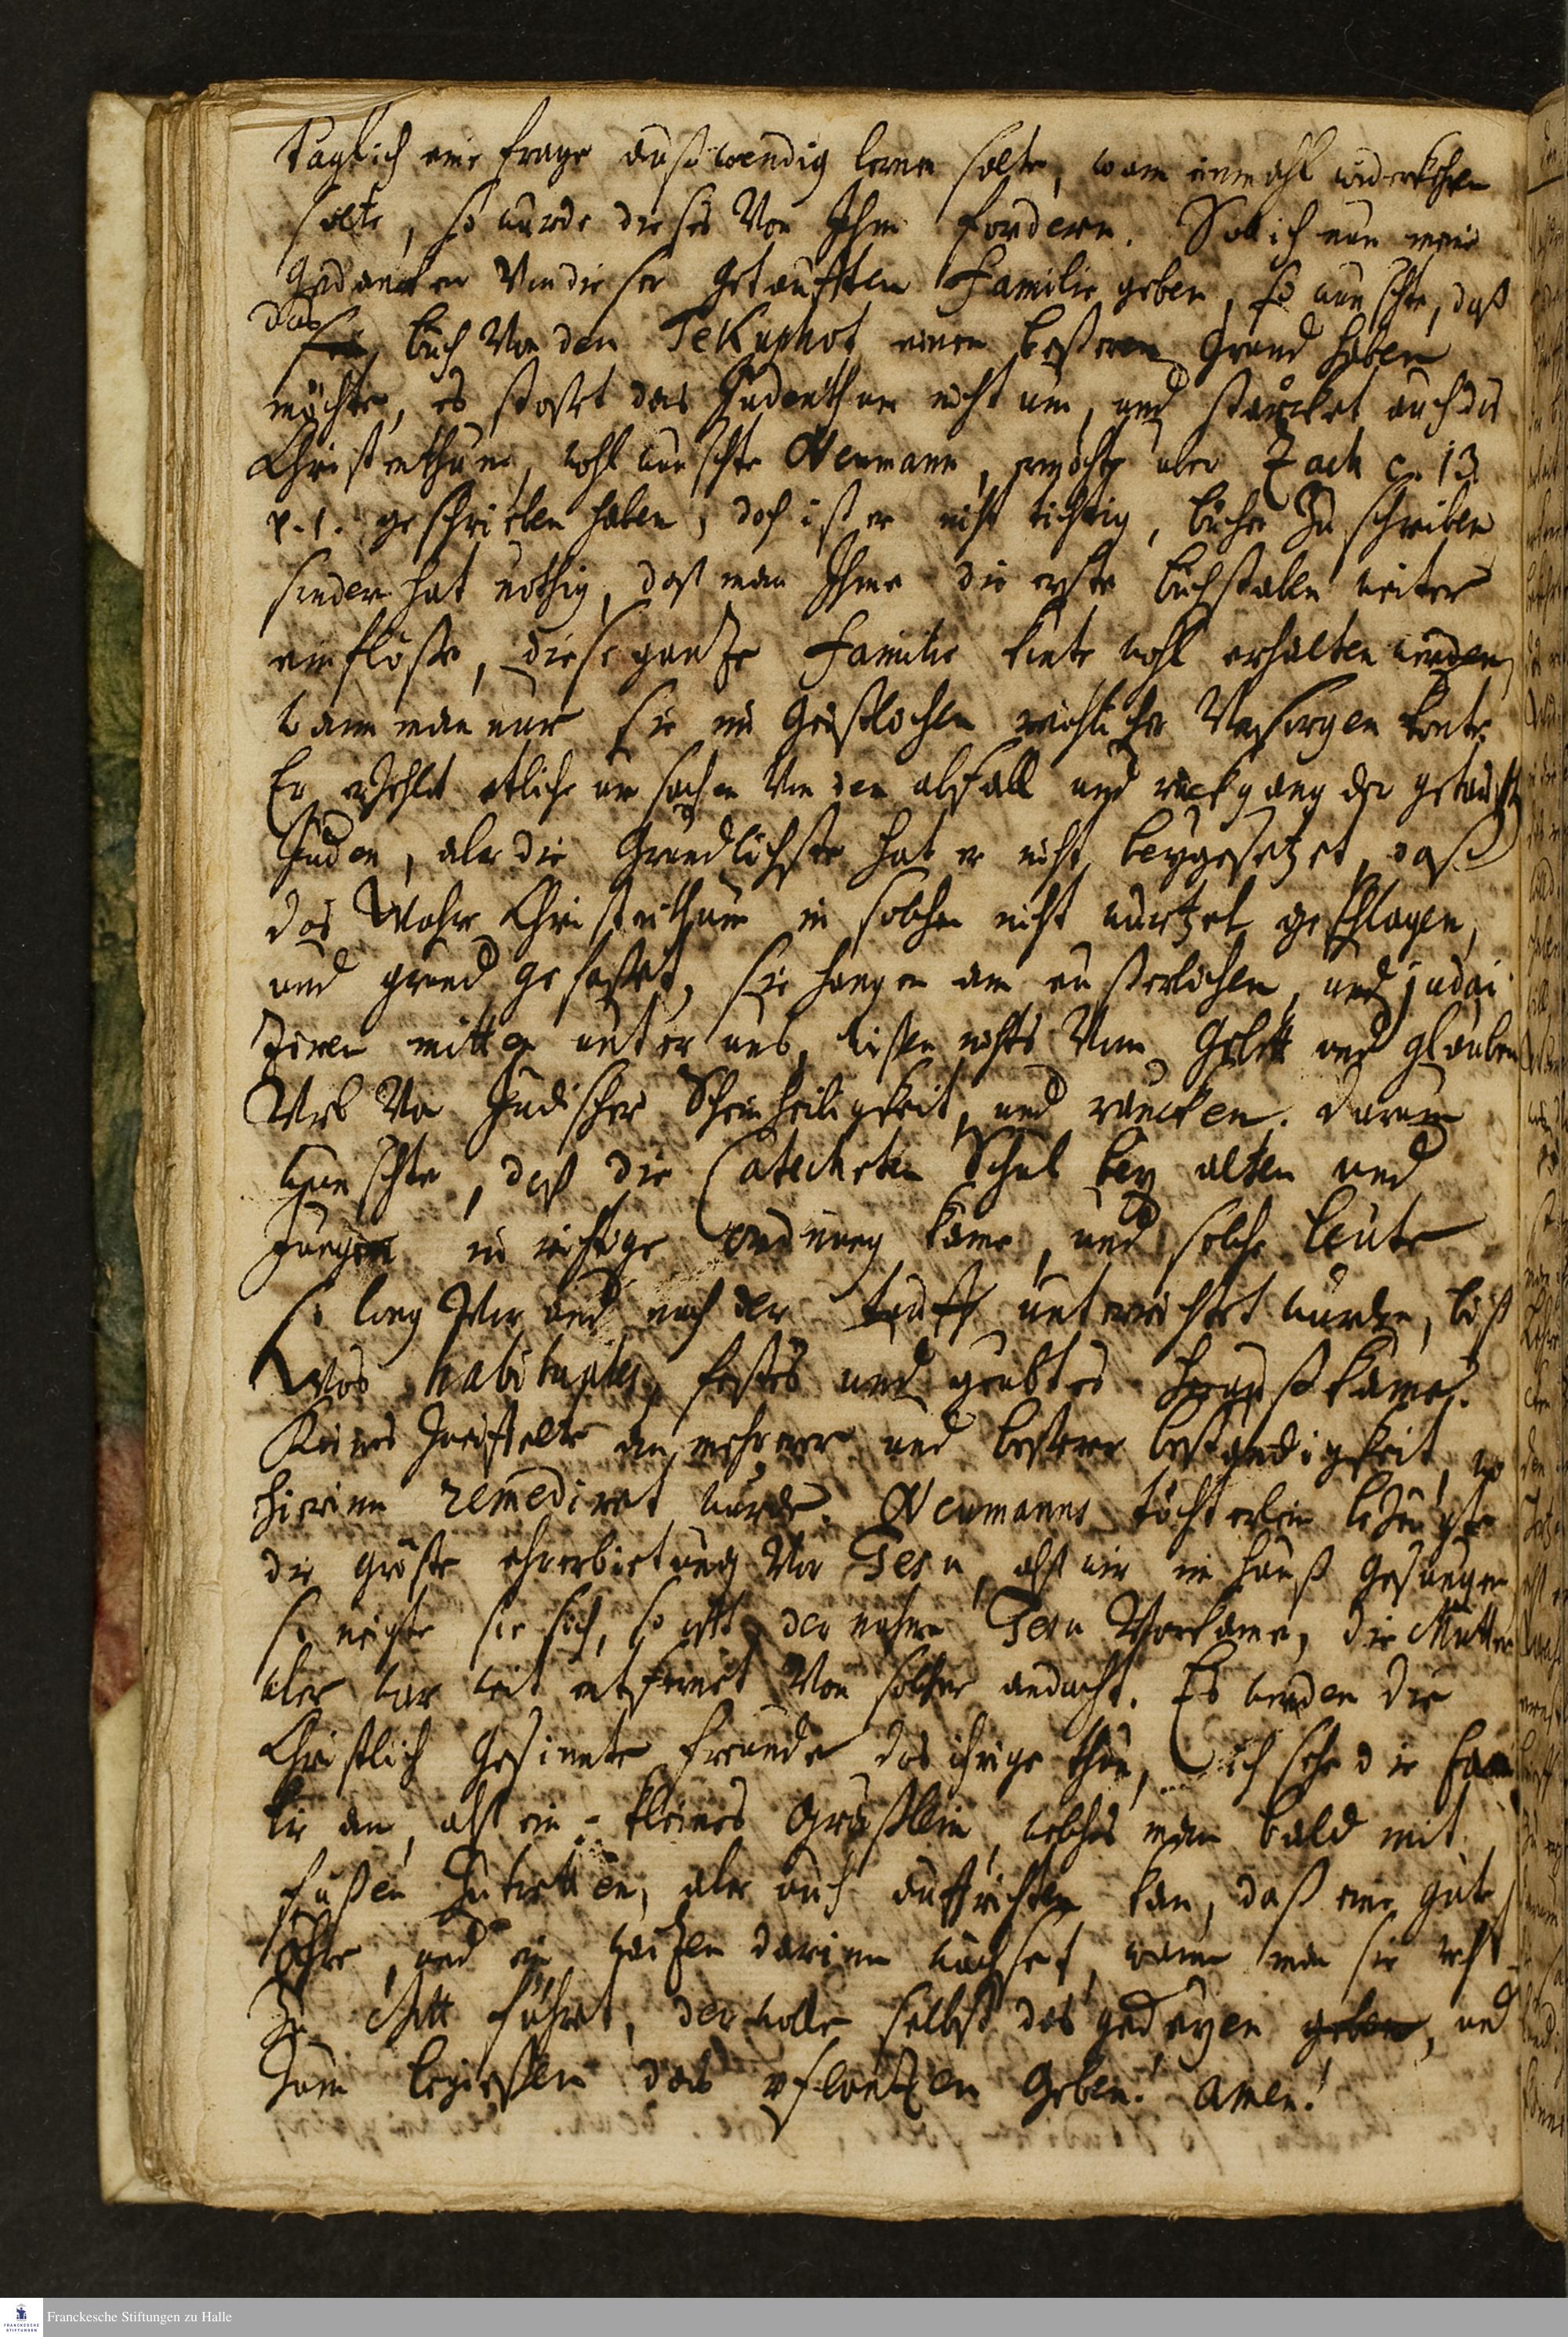 täglich eine frage außwendig lernen solte, wann einmahl widerkehren
solte, so wurde dieses Von Ihm fordern. Soll ich nun meine
Gedancken Von dieser Getaufften Familie geben, so wunschte, daß
das buch Von den Tekuphot einen beßeren Grund haben
möchte, es stoßet das Judenthum nicht um, und stärcket auch das
Christenthum, wohl wunschte Neumann, er möchte uber Zach c. 13.
v. 1. geschrieben haben, doch ist er nicht tichtig, bücher Zu schreiben
sindern hat nöthig, daß man Ihme die erste buchstaben weiter
einflöße, diese gantze Familie kinte wohl erhalten werden,
wann man nur sie im Geistlichen reichlicher Versorgen konte.
Er erzehlet etliche ursachen Von dem abfall und ruckgang der getaufften
Juden, aber die Grundlichste hat er nicht beygesetzet, daß
das Wahre Christenthum in solchen nicht wurtzel geschlagen,
und grund gefaßet, sie hangen am eußerlichen, und judai
ziren mitten unter uns, wißen nichts Vom Gebett und glauben
Als Von Judischer Scheinheiligkeit, und rancken. Darum
wunschte, daß die Catecheten Schul bey alten und
Jungen in richtige ordnung käme, und solche leute
so lang Vor und nach der tauff unterrichtet wurden, biß
Was habituales, festes und geubtes herauß käme.
Keines Zweiffels an mehrerer und beßerer beständigkeit, wo
hierinn remediret wurde. Neumanns töchterlein bezeugte
die gröste ehrerbietung Vor Jesu, alß wir im Hauß Gesungen
so neigte sie sich, so offt der nahme Jesu Vorkame, die Mutter
aber war weit entfernet Von solcher andacht. Es werden die
Christlich Gesinnte freunde das ihrige thun, ich sehe die Fami
lie an, alß ein kleines Graßlein, welches man bald mit
fußen Zutretten, aber auch auffrichten kan, daß eine gute
Ähre, und ein waitzen darinn wachset, wann man sie recht
Zu Gott führet, der wolle selbst das gedeyen geben, und
Zum begießen das pflantzen Geben! Amen!
Franckesche Stiftungen zu Halle